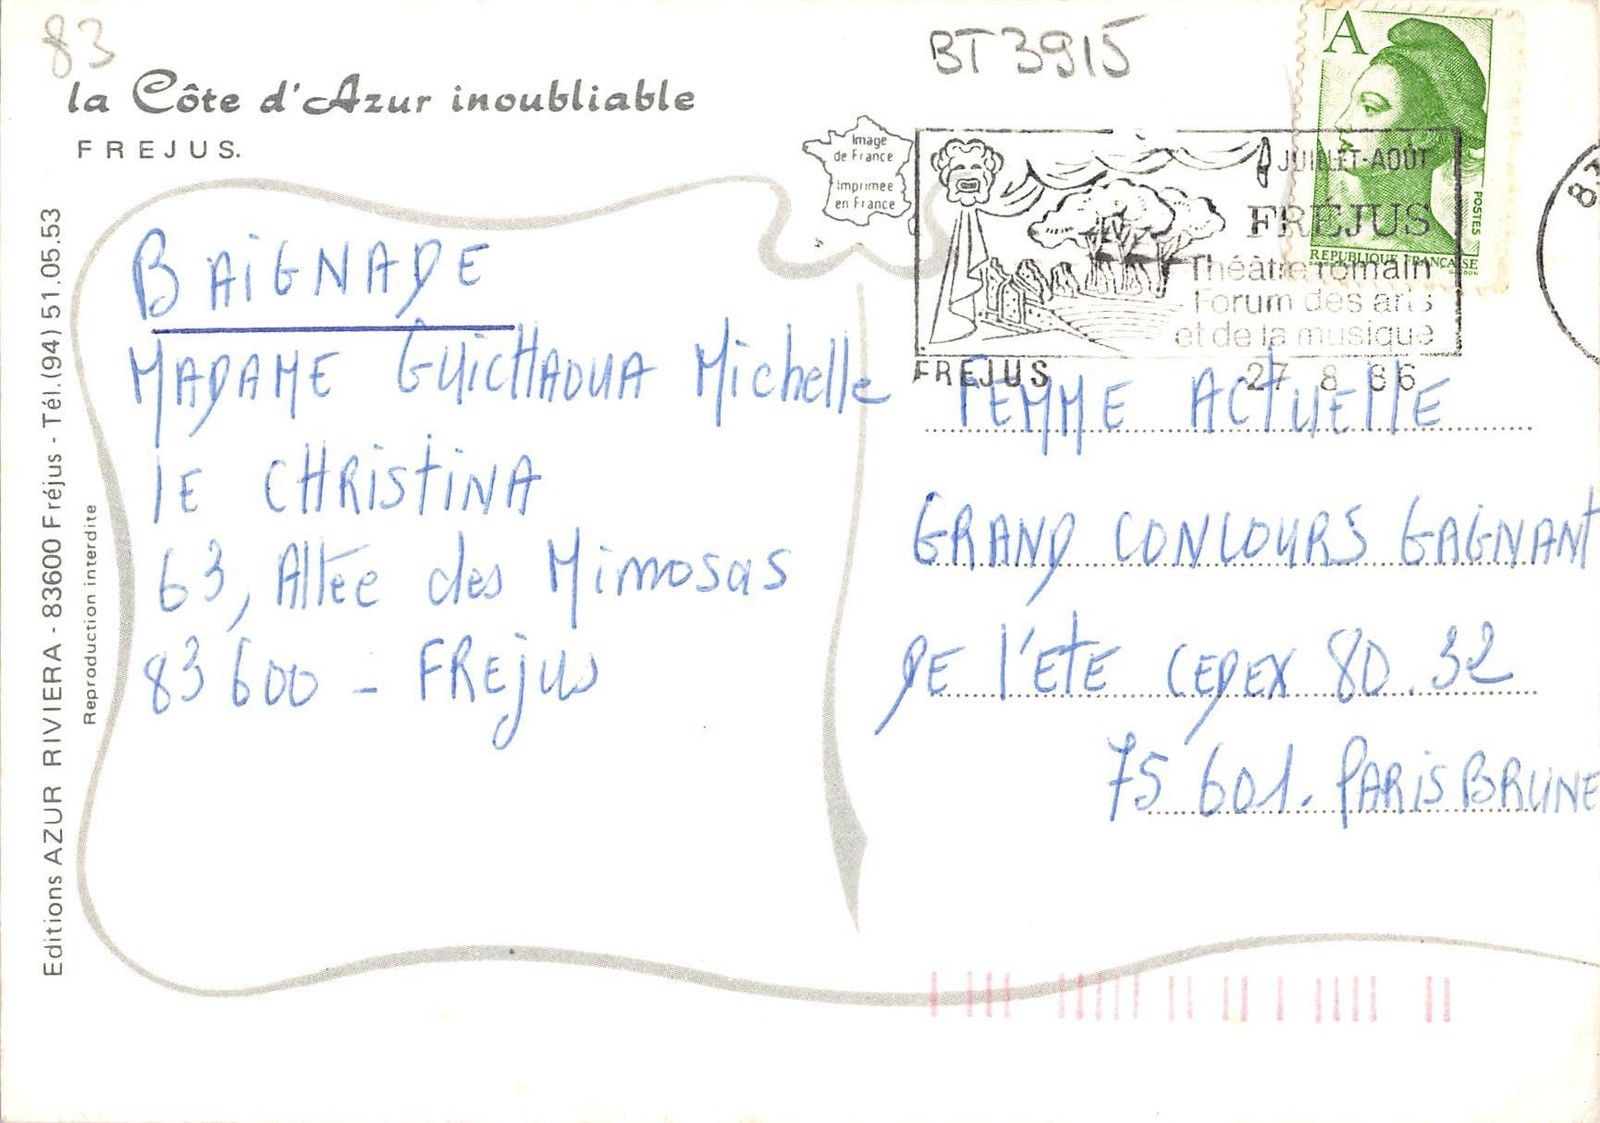 83
BT 3915
la Côte d'Azur inoubliable
FREJUS.
Image
de France
Imprimée
en France
A
POSTES
REPUBLIQUE FRANÇAISE
JUILLET-AOÛT
FRÉJUS
Théâtre romain
Forum des arts
et de la musique
FREJUS 27 8 86
83
Editions AZUR RIVIERA - 83600 Fréjus - Tél.(94) 51.05.53
Reproduction interdite
BAiGNADE
MADAME GUICHAOUA Michelle
lE CHRistiNA
63, Allée des Mimosas
83 600 - FREjus
FEMME ACTUEllE
GRAND CONCOURS GAGNANT
DE l'EtE CEDEX 80.32
75 601. PARiS BRUNE